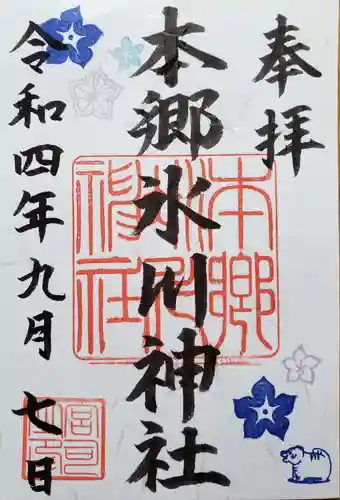 奉拝
本郷氷川神社
令和四年九月七日
本郷氷川神社
宮司之印